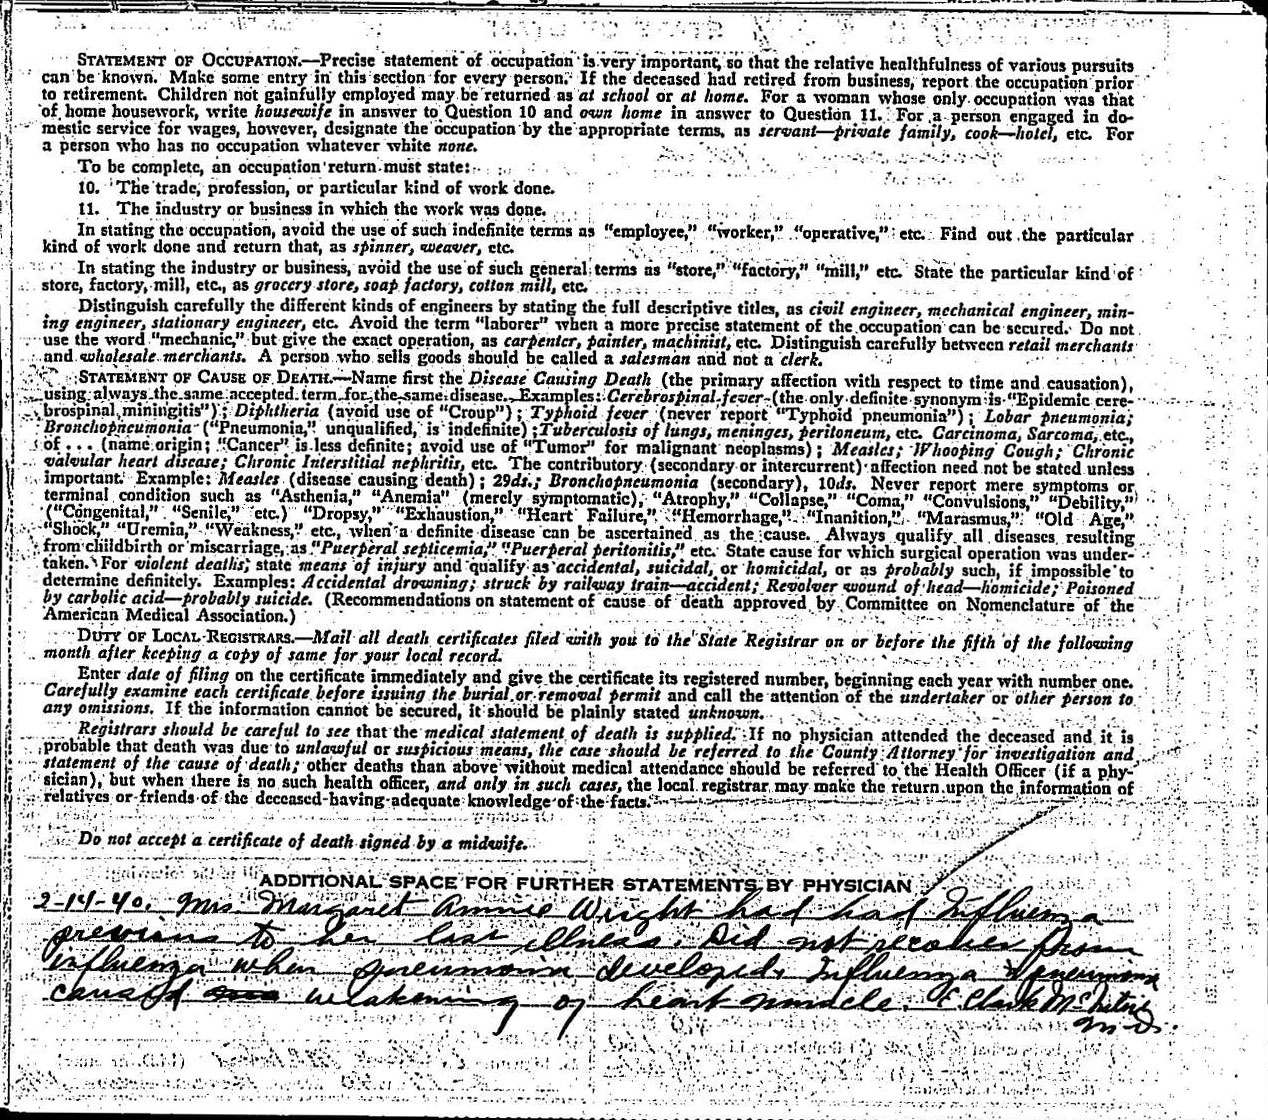 STATEMENT OF OCCUPATION.—Precise statement of occupation is very important, so that the relative healthfulness of various pursuits
can be known. Make some entry in this section for every person. If the deceased had retired from business, report the occupation prior
to retirement. Children not gainfully employed may be returned as at school or at home. For a woman whose only occupation was that
of home housework, write housewife in answer to Question 10 and own home in answer to Question 11. For a person engaged in do-
mestic service for wages, however, designate the occupation by the appropriate terms, as servant—private family, cook—hotel, etc. For
a person who has no occupation whatever white none.
To be complete, an occupation return must state:
10. The trade, profession, or particular kind of work done.
11. The industry or business in which the work was done.
In stating the occupation, avoid the use of such indefinite terms as "employee," "worker," "operative," etc. Find out the particular
kind of work done and return that, as spinner, weaver, etc.
In stating the industry or business, avoid the use of such general terms as "store," "factory," "mill," etc. State the particular kind of
store, factory, mill, etc., as grocery store, soap factory, cotton mill, etc.
Distinguish carefully the different kinds of engineers by stating the full descriptive titles, as civil engineer, mechanical engineer, min-
ing engineer, stationary engineer, etc. Avoid the term "laborer" when a more precise statement of the occupation can be secured. Do not
use the word "mechanic," but give the exact operation, as carpenter, painter, machinist, etc. Distinguish carefully between retail merchants
and wholesale merchants. A person who sells goods should be called a salesman and not a clerk.
STATEMENT OF CAUSE OF DEATH.—Name first the Disease Causing Death (the primary affection with respect to time and causation),
using always the same accepted term for the same disease. Examples: Cerebrospinal fever (the only definite synonym is "Epidemic cere-
brospinal miningitis"); Diphtheria (avoid use of "Croup"); Typhoid fever (never report "Typhoid pneumonia"); Lobar pneumonia;
Bronchopneumonia ("Pneumonia," unqualified, is indefinite); Tuberculosis of lungs, meninges, peritoneum, etc. Carcinoma, Sarcoma, etc.,
of ... (name origin; "Cancer" is less definite; avoid use of "Tumor" for malignant neoplasms); Measles; Whooping Cough; Chronic
valvular heart disease; Chronic Interstitial nephritis, etc. The contributory (secondary or intercurrent) affection need not be stated unless
important. Example: Measles (disease causing death); 29ds.; Bronchopneumonia (secondary), 10ds. Never report mere symptoms or
terminal condition such as "Asthenia," "Anemia" (merely symptomatic), "Atrophy," "Collapse," "Coma," "Convulsions," "Debility,"
("Congenital," "Senile," etc.) "Dropsy," "Exhaustion," "Heart Failure," "Hemorrhage," "Inanition," "Marasmus," "Old Age,"
"Shock," "Uremia," "Weakness," etc., when a definite disease can be ascertained as the cause. Always qualify all diseases resulting
from childbirth or miscarriage, as "Puerperal septicemia," "Puerperal peritonitis," etc. State cause for which surgical operation was under-
taken. For violent deaths, state means of injury and qualify as accidental, suicidal, or homicidal, or as probably such, if impossible to
determine definitely. Examples: Accidental drowning; struck by railway train—accident; Revolver wound of head—homicide; Poisoned
by carbolic acid—probably suicide. (Recommendations on statement of cause of death approved by Committee on Nomenclature of the
American Medical Association.)
DUTY OF LOCAL REGISTRARS.—Mail all death certificates filed with you to the State Registrar on or before the fifth of the following
month after keeping a copy of same for your local record.
Enter date of filing on the certificate immediately and give the certificate its registered number, beginning each year with number one.
Carefully examine each certificate before issuing the burial or removal permit and call the attention of the undertaker or other person to
any omissions. If the information cannot be secured, it should be plainly stated unknown.
Registrars should be careful to see that the medical statement of death is supplied. If no physician attended the deceased and it is
probable that death was due to unlawful or suspicious means, the case should be referred to the County Attorney for investigation and
statement of the cause of death; other deaths than above without medical attendance should be referred to the Health Officer (if a phy-
sician), but when there is no such health officer, and only in such cases, the local registrar may make the return upon the information of
relatives or friends of the deceased having adequate knowledge of the facts.
Do not accept a certificate of death signed by a midwife.
ADDITIONAL SPACE FOR FURTHER STATEMENTS BY PHYSICIAN
2-14-40. Mrs. Margaret Annie Wright had had Influenza
previous to her last illness. Did not recover from
influenza when pneumonia developed. Influenza & pneumonia
caused weakening of heart muscle. E. Clark McIntire
M.D.